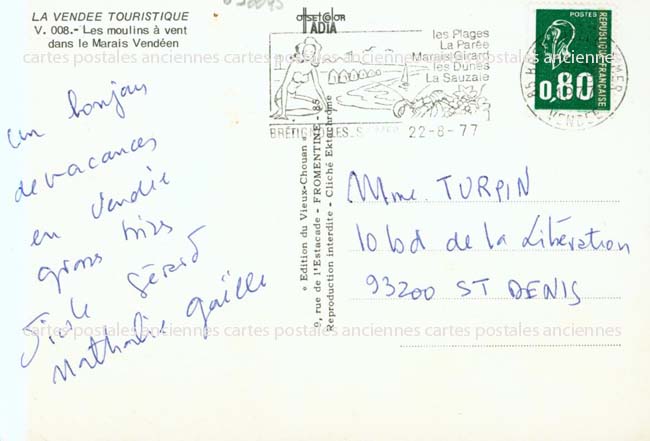 LA VENDEE TOURISTIQUE
V. 008.- Les moulins à vent
dans le Marais Vendéen
offset color
IADIA
les Plages
La Parée
Marais Girard
les Dunes
La Sauzaie
BRÉTIGNOLLES-S
22-8-77
POSTES
0,80
REPUBLIQUE FRANÇAISE
VENDEE
un bonjour
de vacances
en Vendée
gros bises
Gisèle Gérard
Nathalie Gaëlle
« Edition du Vieux-Chouan »
9, rue de l'Estacade - FROMENTINE - 85
Reproduction interdite - Cliché Ektachrome
Mme TURPIN
10 bd de la Libération
93200 ST DENIS
cartes postales anciennes cartes postales anciennes cartes postales anciennes
cartes postales anciennes cartes postales anciennes cartes postales anciennes